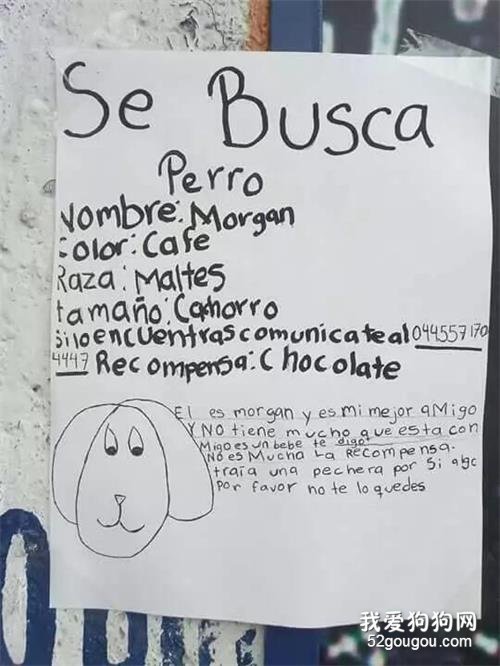 Se Busca
Perro
Nombre: Morgan
Color: Cafe
Raza: Maltes
tamaño: Cahorro
Si lo encuentras comunicate al 044557170
4447 Recompensa: Chocolate
El es morgan y es mi mejor aMigo
Y NO tiene mucho que esta con
Migo es un bebe te digo
NO es Mucha La Recompensa.
traía una pechera por si algc
Por favor no te lo quedes
我爱狗狗网
52gougou.com